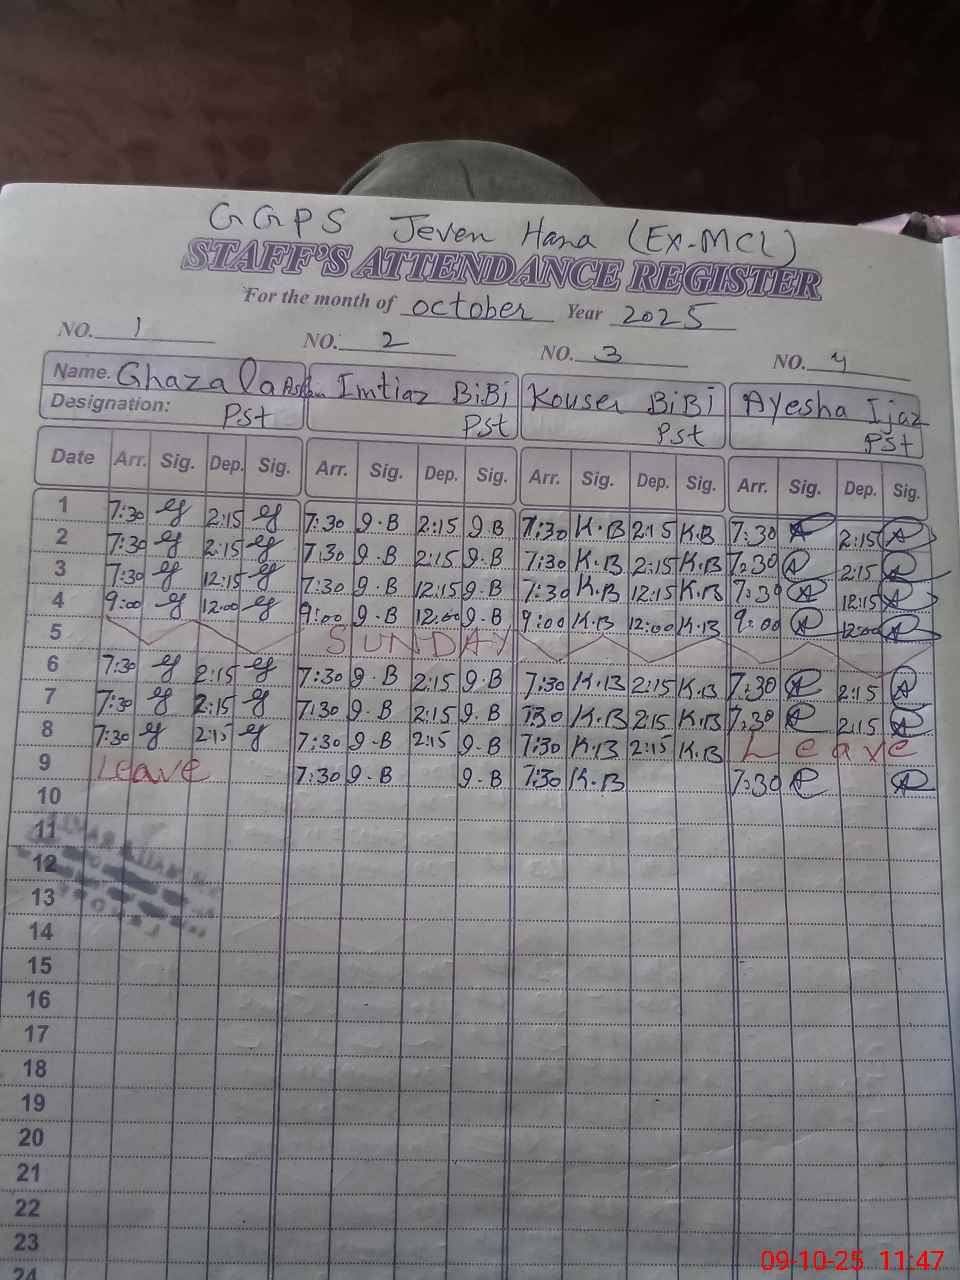 GGPS Jeven Hana (Ex-MCL)
STAFF'S ATTENDANCE REGISTER
For the month of october Year 2025
NO. 1 NO. 2 NO. 3 NO. 4
Name. Ghazala Imtiaz BiBi Kouser BiBi Ayesha Ijaz
Designation: Pst Pst Pst Pst
Date Arr. Sig. Dep. Sig. Arr. Sig. Dep. Sig. Arr. Sig. Dep. Sig. Arr. Sig. Dep. Sig.
1 7:30 2:15 7:30 I.B 2:15 I.B 7:30 K.B 2:15 K.B 7:30 A 2:15 A
2 7:30 2:15 7:30 I.B 2:15 I.B 7:30 K.B 2:15 K.B 7:30 A 2:15 A
3 7:30 12:15 7:30 I.B 12:15 I.B 7:30 K.B 12:15 K.B 7:30 A 12:15 A
4 9:00 12:00 9:00 I.B 12:00 I.B 9:00 K.B 12:00 K.B 9:00 A 12:00 A
5 SUNDAY
6 7:30 2:15 7:30 I.B 2:15 I.B 7:30 K.B 2:15 K.B 7:30 A 2:15 A
7 7:30 2:15 7:30 I.B 2:15 I.B 730 K.B 2:15 K.B 7:30 A 2:15 A
8 7:30 2:15 7:30 I.B 2:15 I.B 7:30 K.B 2:15 K.B Leave
9 Leave 7:30 I.B I.B 7:30 K.B 7:30 A A
10
11
12
13
14
15
16
17
18
19
20
21
22
23
24
09-10-25 11:47